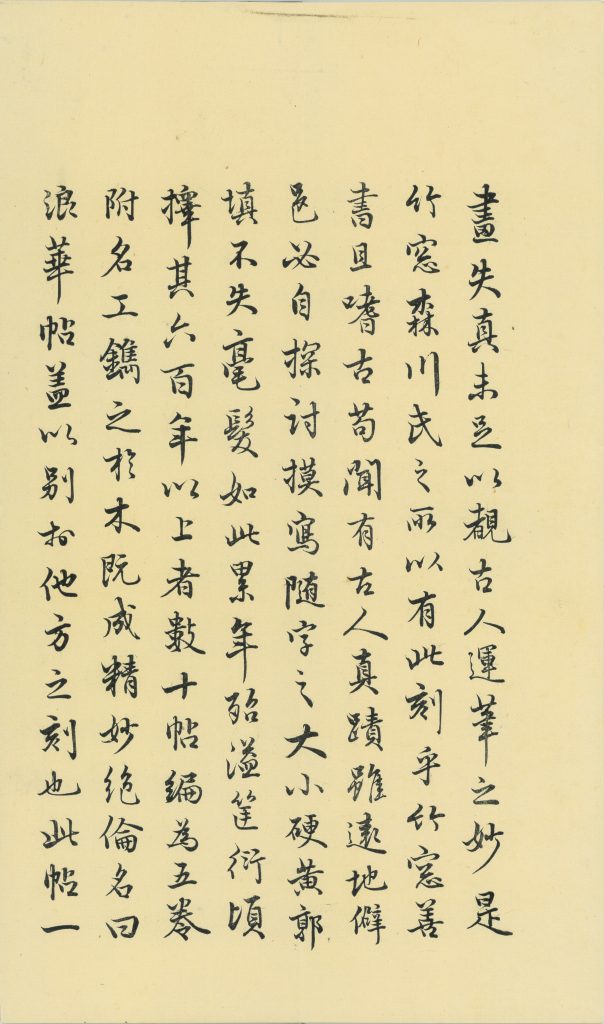 畫失真未足以觀古人運筆之妙是
竹窓森川氏之所以有此刻乎竹窓善
書且嗜古苟聞有古人真蹟雖遠地僻
邑必自探討摸寫随字之大小硬黃郭
填不失毫髮如此累年殆溢筐衍頃
擇其六百年以上者數十帖編為五卷
附名工鐫之於木既成精妙絶倫名曰
浪華帖蓋以别於他方之刻也此帖一